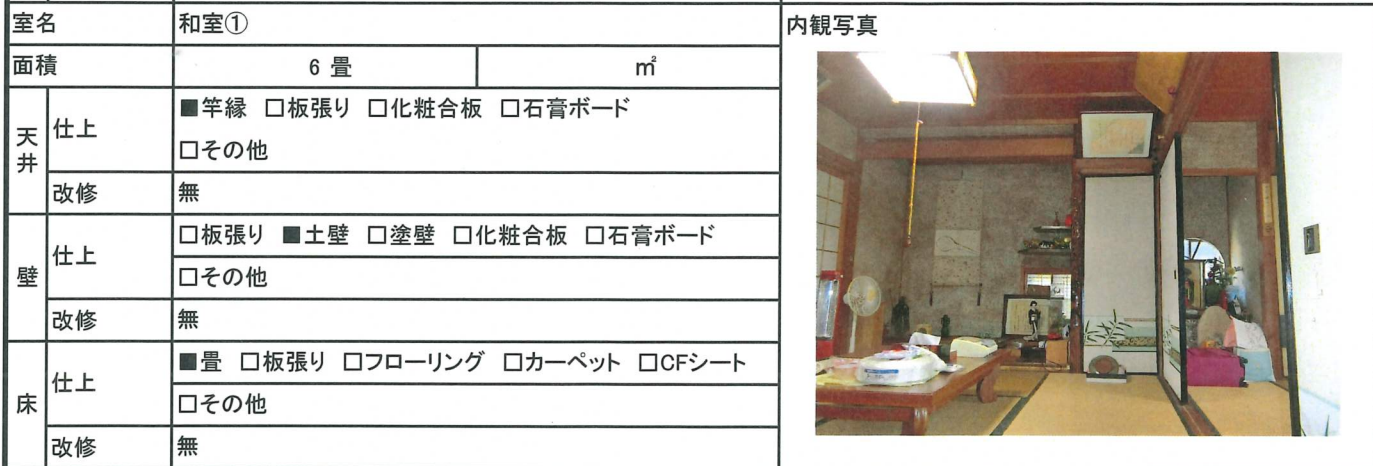 室名 和室① 内観写真
面積 6 畳 ㎡
天井 仕上 ■竿縁 □板張り □化粧合板 □石膏ボード
□その他
改修 無
壁 仕上 □板張り ■土壁 □塗壁 □化粧合板 □石膏ボード
□その他
改修 無
床 仕上 ■畳 □板張り □フローリング □カーペット □CFシート
□その他
改修 無